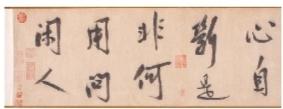 心自
斷是
非何
用問
閑人